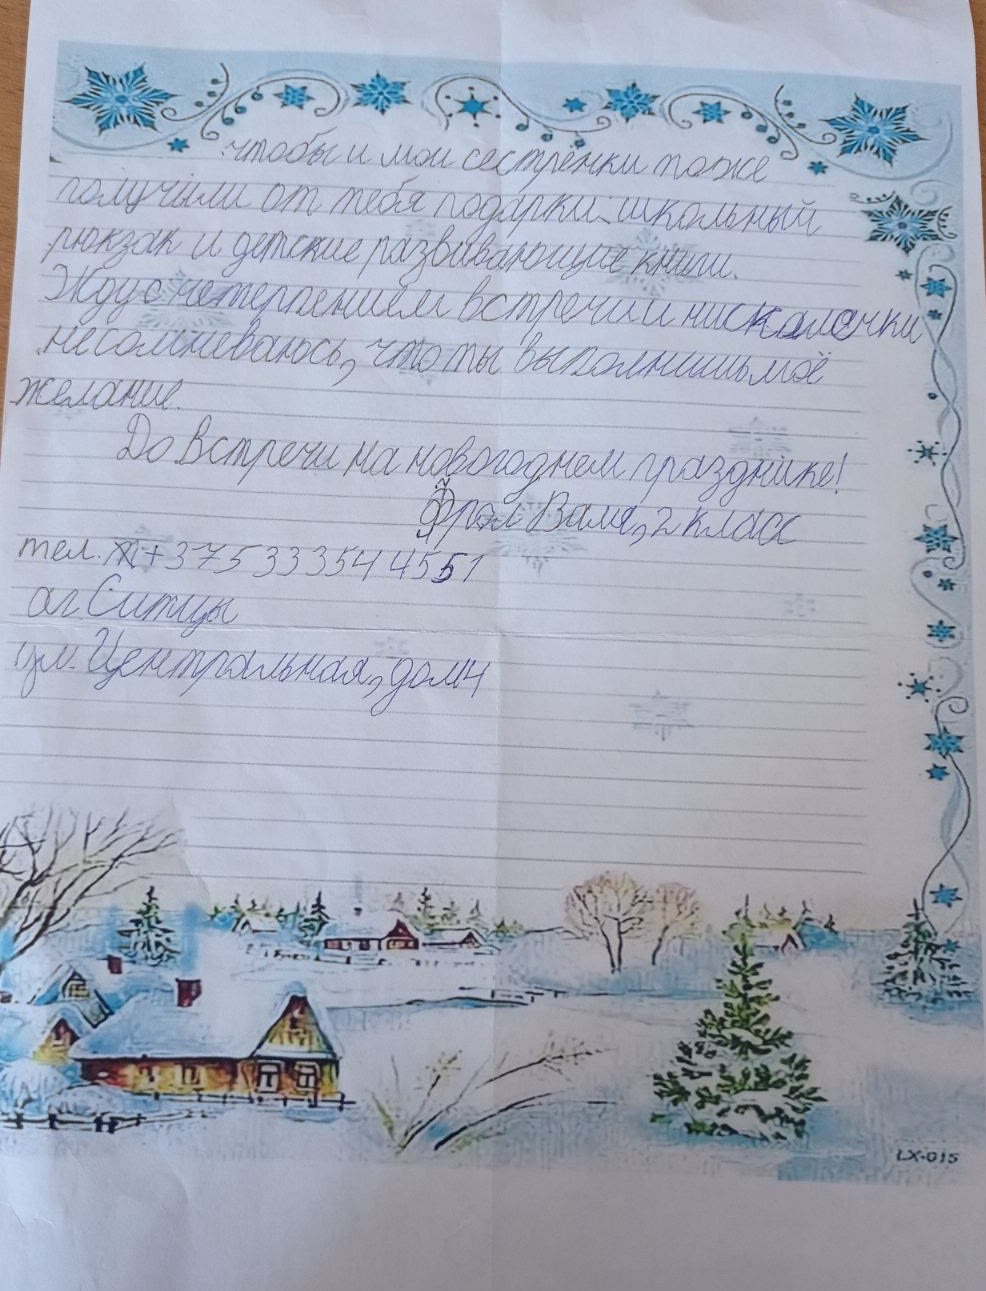 чтобы и мои сестрёнки тоже
получили от тебя подарки: школьный
рюкзак и детские развивающие книги.
Жду с нетерпением встречи и нискалечки
несомневаюсь, что ты выполнишь моё
желание.
До встречи на новогоднем празднике!
Фрол Ваня, 2 класс
тел. +375333544551
аг. Ситцы
ул. Центральная, дом 4
LX-015